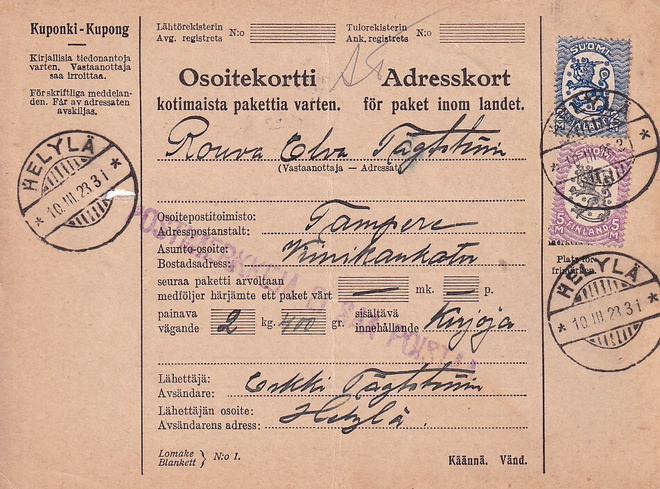 Kuponki-Kupong
Kirjallisia tiedonantoja
varten. Vastaanottaja
saa irroittaa.
För skriftliga meddelan-
den. Får av adressaten
avskiljas.
Lähtörekisterin
Avg. registrets N:o
Tulorekisterin
Ank. registrets N:o
Osoitekortti Adresskort
kotimaista pakettia varten. för paket inom landet.
Rouva Elva Tägtström
(Vastaanottaja - Adressat)
Osoitepostitoimisto:
Adresspostanstalt: Tampere
Asunto-osoite:
Bostadsadress:
seuraa paketti arvoltaan
medföljer härjämte ett paket värt — mk. — p.
painava
vägande 2 kg. 400 gr. sisältävä
innehållande Kirjoja
Lähettäjä:
Avsändare: Erkki Tägtström
Lähettäjän osoite:
Avsändarens adress: Helylä
Lomake
Blankett N:o 1.
Käännä. Vänd.
POSTIMERKKEJÄ EI SAA POISTAA
HELYLÄ
10.III.23.31
SUOMI
FINLAND
FINLAND
Plats för
frimärken.
HELYLÄ
10.III.23.31